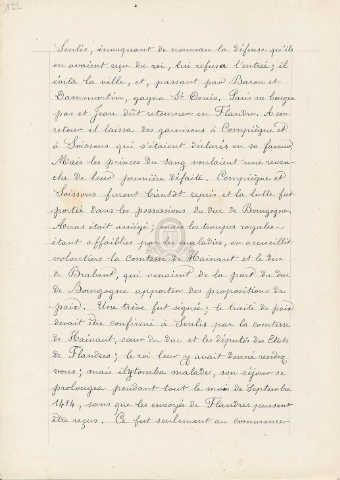 Senlis, invoquant de nouveau la défense qu'ils
en avaient reçu du roi, lui refusa l'entrée; il
évita la ville, et, passant par Baron et
Dammartin, gagna St Denis. Paris ne bougea
pas et Jean dût retourner en Flandre. A son
retour il laissa des garnisons à Compiègne et
à Soissons qui s'étaient déclarés en sa faveur
Mais les princes du sang voulaient une revan-
che de leur première défaite. Compiègne et
Soissons furent bientôt repris et la lutte fut
portée dans les possessions du duc de Bourgogne.
Arras était assiégé; mais les troupes royales
étant affaiblies par les maladies, on accueillit
volontiers la comtesse de Hainaut et le duc
de Brabant, qui venaient de la part du duc
de Bourgogne apporter des propositions de
paix. Une trève fut signée; le traité de paix
devait être confirmé à Senlis par la comtesse
de Hainaut, sœur du duc et les députés des Etats
de Flandres; le roi leur y avait donné rendez
vous; mais il y tomba malade, son séjour se
prolongea pendant tout le mois de Septembre
1414, sans que les envoyés de Flandres pussent
être reçus. Ce fut seulement au commence-